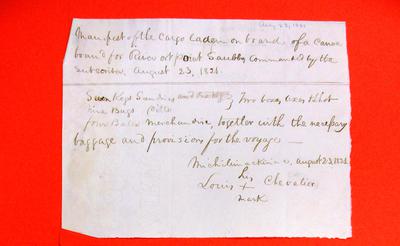 Aug 23, 1821
Manifest of the Cargo laden on board of a canoe
bound for River St. Commanded by the
subscriber August 23, 1821.
Seven Kegs Sundries and one keg, Two boxes axes & Shot
five Bags Ditto
four Bales merchandise, together with the necessary
baggage and provisions for the voyage —
Michilimackinac, august 23, 1821.
his
Louis + Chevalier
mark